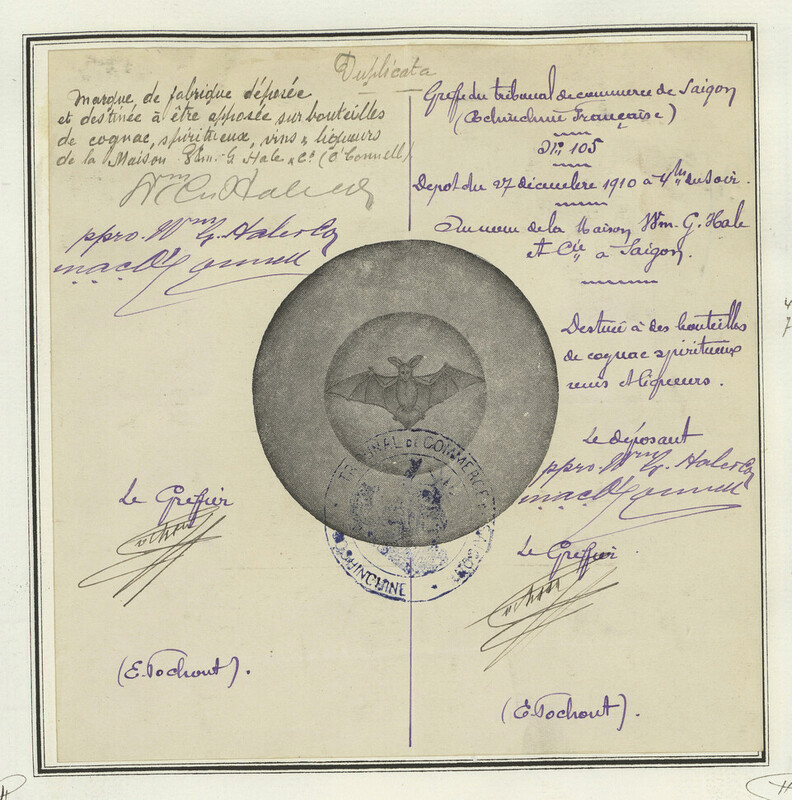 Duplicata
Marque de fabrique déposée
et destinée à être apposée sur bouteilles
de cognac, spiritueux, vins & liqueurs
de la Maison Wm. G. Hale & Co (O'Connell)
Wm G Hale & Co
ppro. Wm G. Hale & Co
MacD O'Connell
Le Greffier
(E. Pochont).
Greffe du tribunal de commerce de Saigon
(Cochinchine Française)
No 105
Depot du 27 décembre 1910 à 4h du soir.
Au nom de la Maison Wm. G. Hale
et Cie à Saigon.
Destinée à des bouteilles
de cognac spiritueux
vins et liqueurs.
Le déposant
ppro. Wm G. Hale & Co
MacD O'Connell
Le Greffier.
(E. Pochont).
TRIBUNAL DE COMMERCE
COCHINCHINE